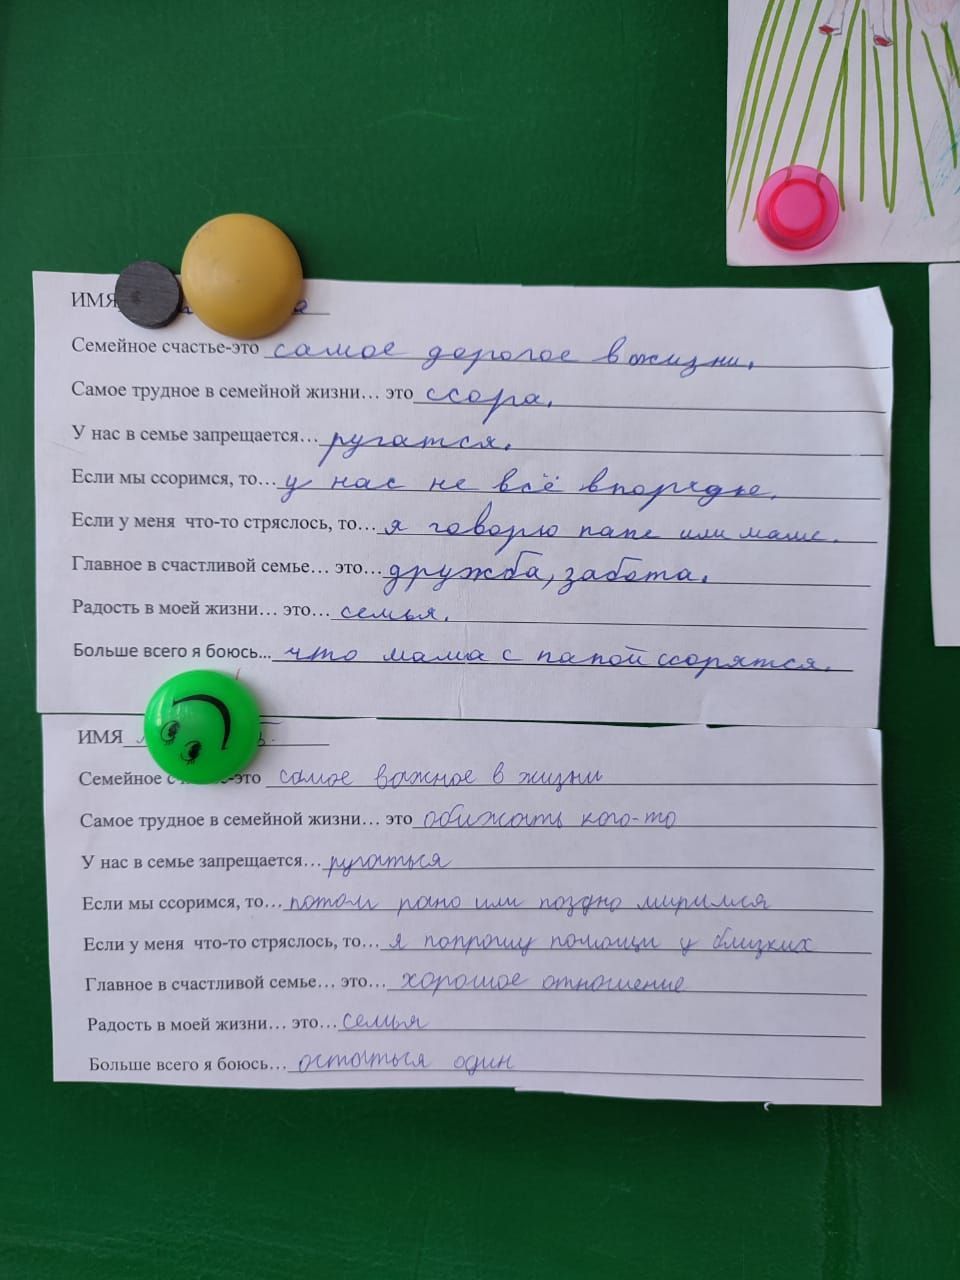 ИМЯ
Семейное счастье-это самое дорогое в жизни.
Самое трудное в семейной жизни… это ссора.
У нас в семье запрещается… ругатся.
Если мы ссоримся, то… у нас не всё впорядке.
Если у меня что-то стряслось, то… я говорю папе или маме.
Главное в счастливой семье… это… дружба, забота.
Радость в моей жизни… это… семья.
Больше всего я боюсь… что мама с папой ссорятся.
ИМЯ
Семейное -это самое важное в жизни
Самое трудное в семейной жизни… это обижать кого-то
У нас в семье запрещается… ругаться
Если мы ссоримся, то… потом рано или поздно миримся
Если у меня что-то стряслось, то… я попрошу помощи у близких
Главное в счастливой семье… это… хорошое отношение
Радость в моей жизни… это… семья
Больше всего я боюсь… остаться один